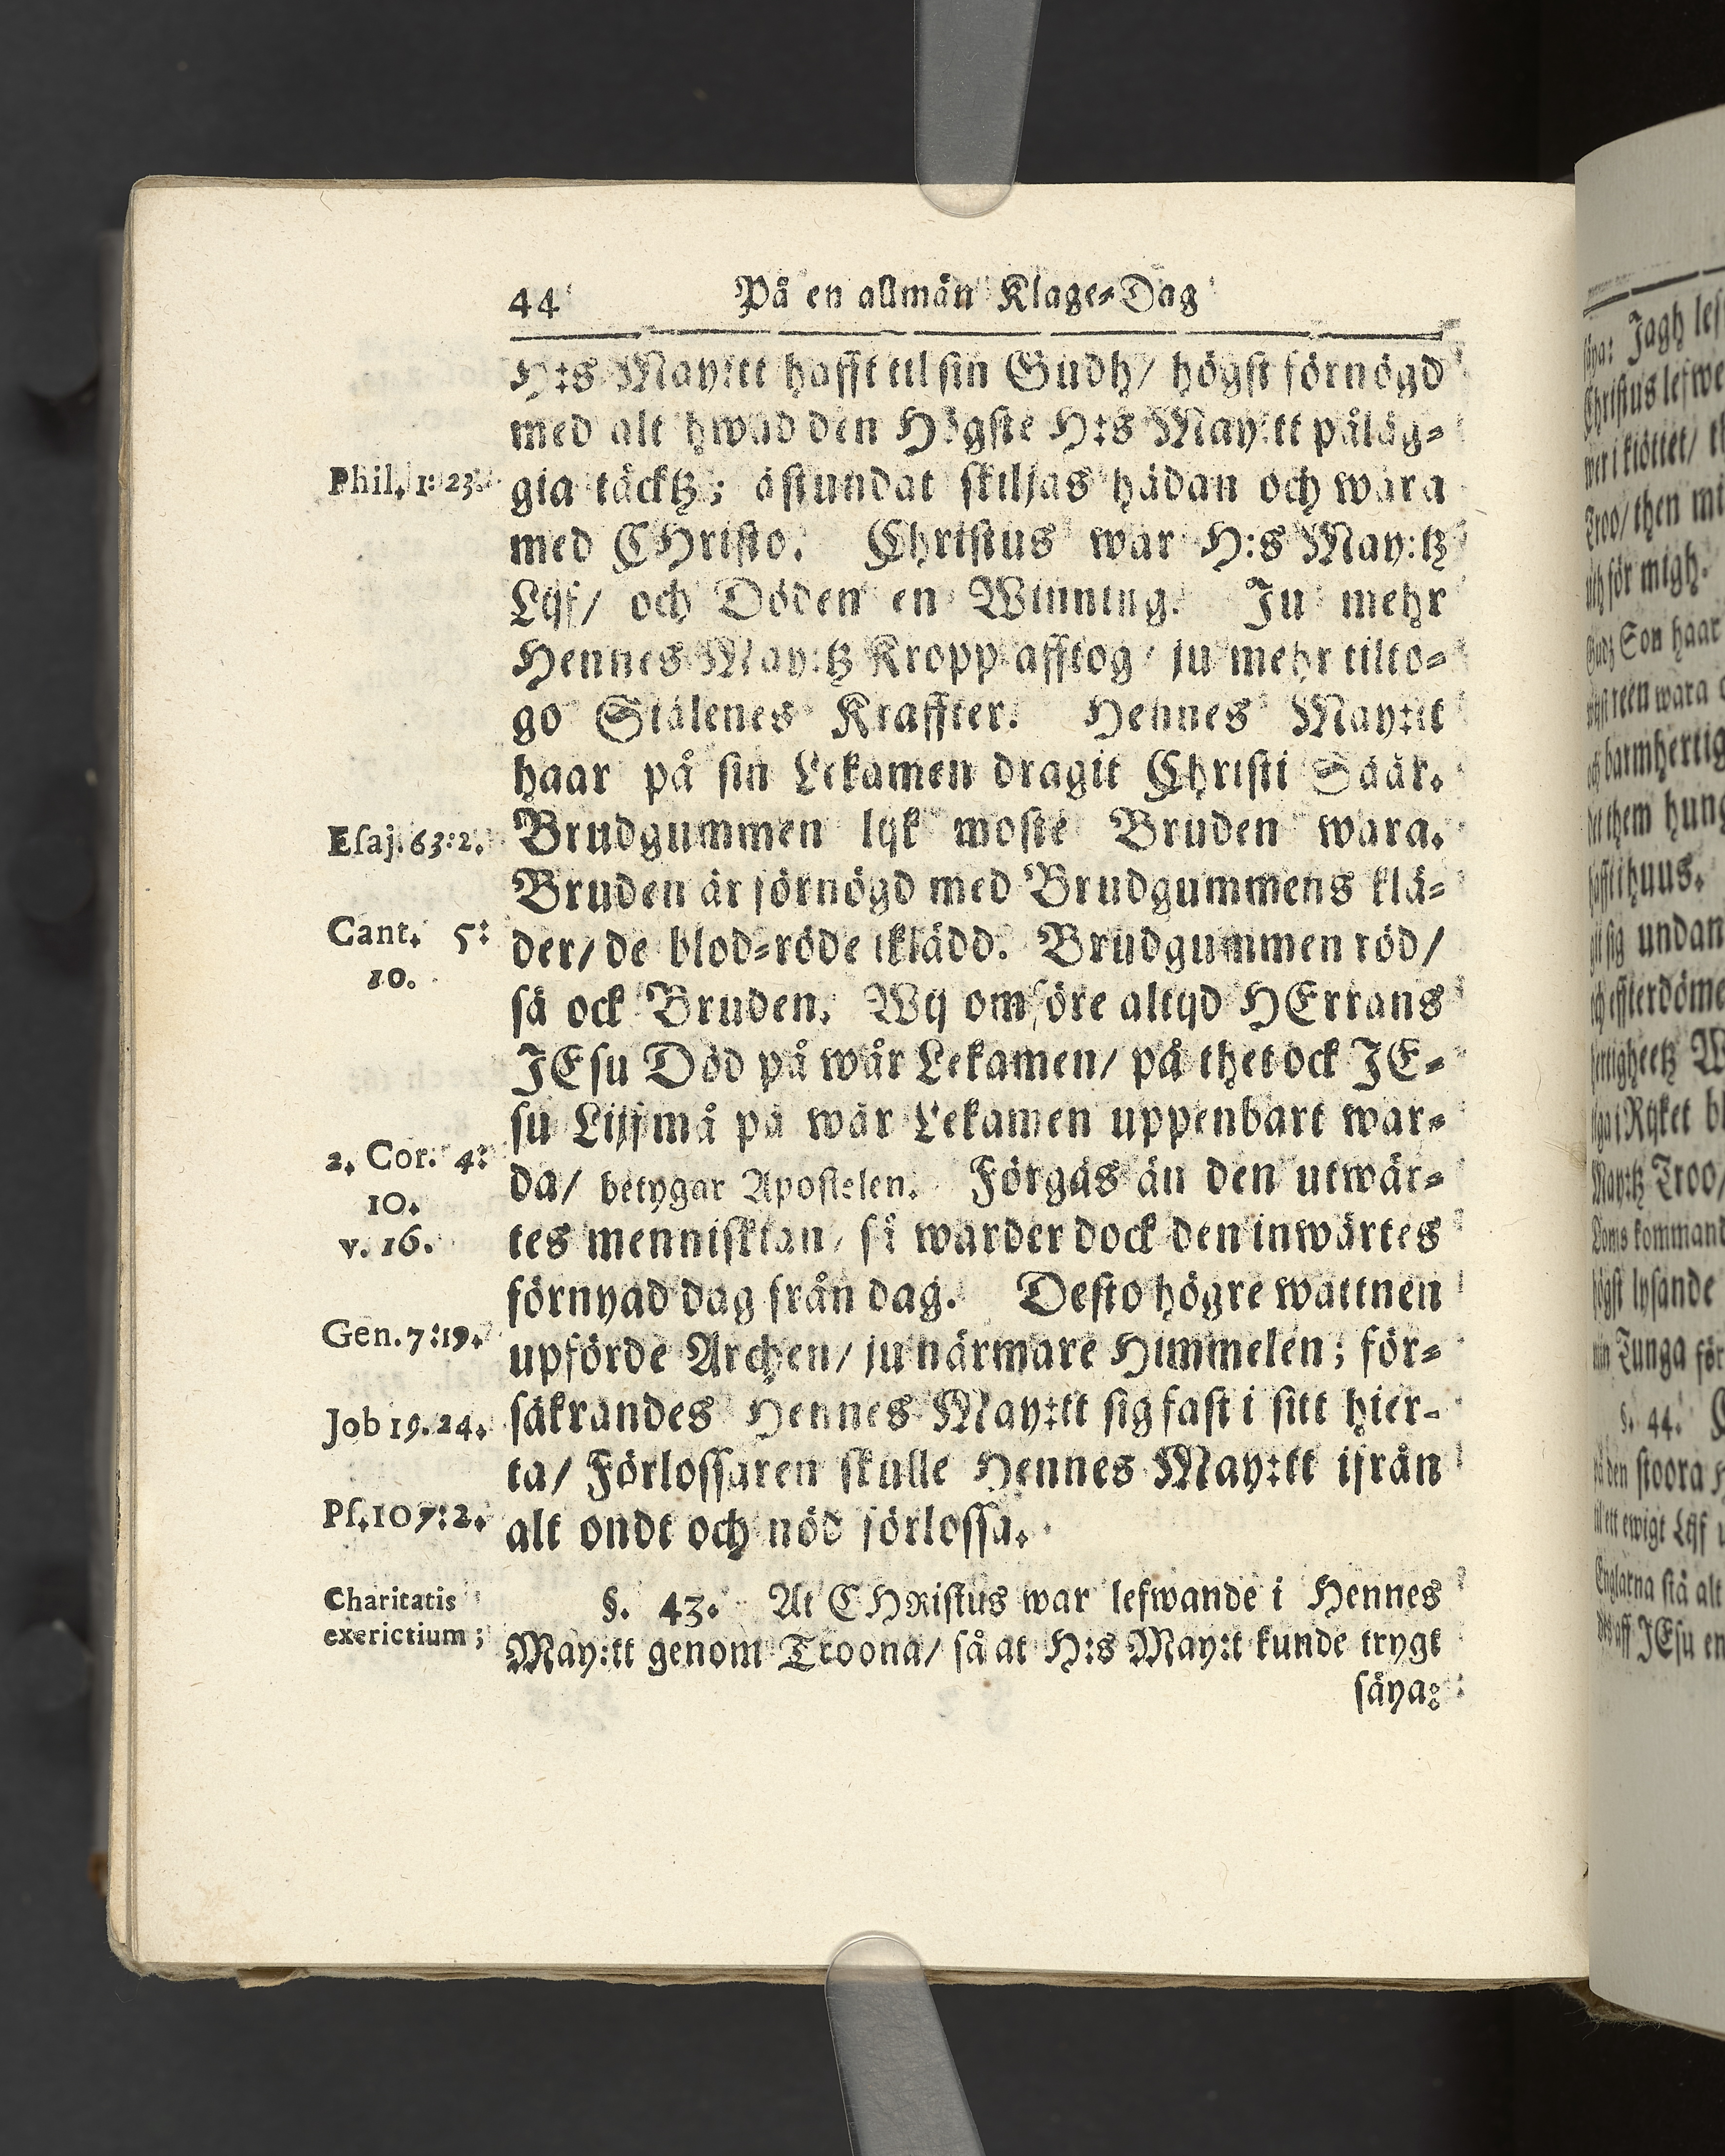 44 På en allmän Klage-Dag
H:s May:tt hafft til sin Gudh/ högst förnögd
med alt hwad den Högste H:s May:tt påläg-
Phil. 1: 23. gia täcktz; åstundat skiljas hädan och wara
med CHristo. Christus war H:s May:tz
Lijf/ och Döden en Winning. Ju mehr
Hennes May:tz Kropp afftog/ ju mehr tilto-
go Siälenes Kraffter. Hennes May:tt
haar på sin Lekamen dragit Christi Såår.
Esaj. 63:2. Brudgummen lijk moste Bruden wara.
Bruden är förnögd med Brudgummens klä-
Cant. 5: der/ de blod-röde iklädd. Brudgummen röd/
10. så ock Bruden. Wij omföre altijd HErrans
JEsu Död på wår Lekamen/ på thet ock JE-
su Lijf må på wår Lekamen uppenbart war-
2. Cor. 4: da/ betygar Apostelen. Förgås än den utwär-
10.
v. 16. tes menniskian/ så warder dock den inwärtes
förnyad dag från dag. Desto högre wattnen
Gen. 7:19. upförde Archen/ ju närmare Himmelen; för-
Job 19. 24. säkrandes Hennes May:tt sig fast i sitt hier-
ta/ Förlossaren skulle Hennes May:tt ifrån
Ps. 107:2. alt ondt och nöd förlossa.
Charitatis §. 43. At CHRistus war lefwande i Hennes
exerictium; May:tt genom Troona/ så at H:s May:t kunde trygt
säya:
säya: Jagh lef
Christus lefwe
wer i kiöttet/ t
Troo/ then mi
uth för migh.
Gudz Son haar
reen wara
barmhertig
them hung
i huus.
sig undan
effterdöme
W
i Rijket bl
May:tz Troo/
Doms kommand
högst lysande
min Tunga för
§. 44.
den stoora H
til ett ewigt Lijf
Englarna stå alt
aff JEsu en